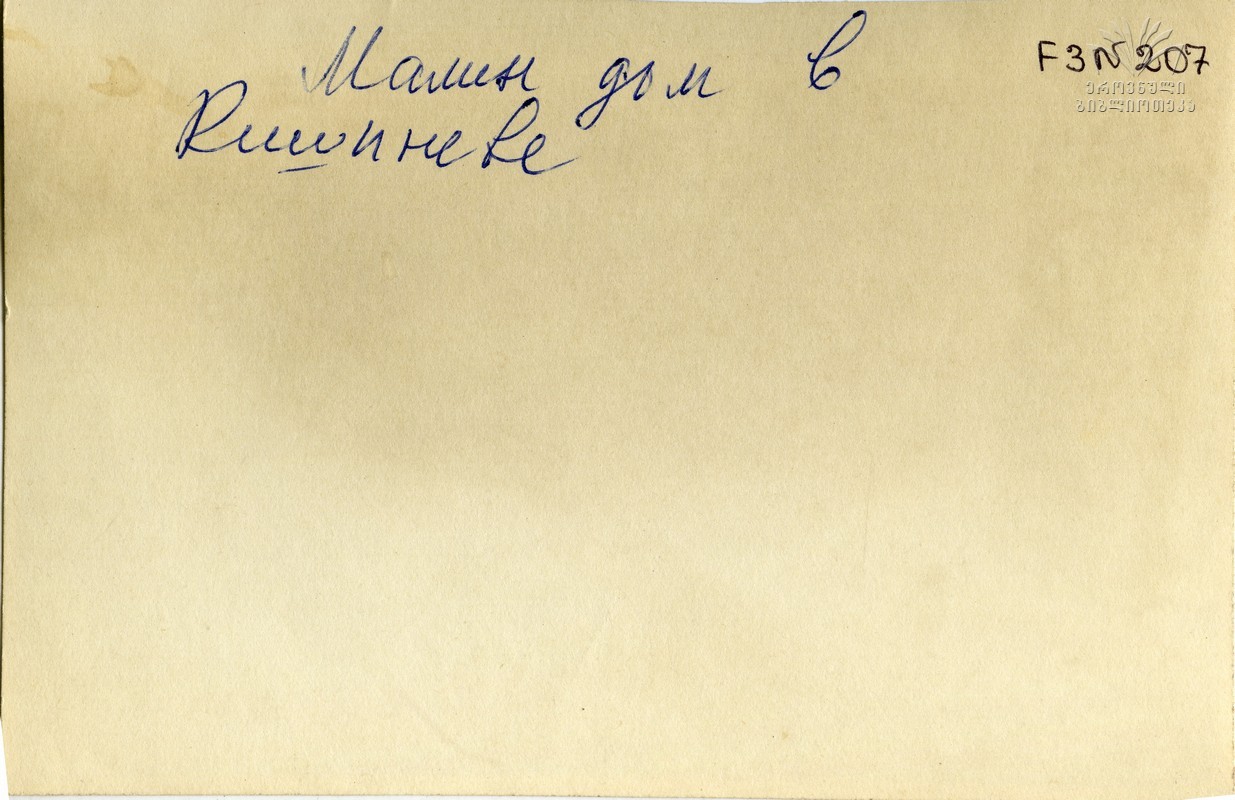 Мамин дом в
Кишиневе
F3N207
ეროვნული
ბიბლიოთეკა